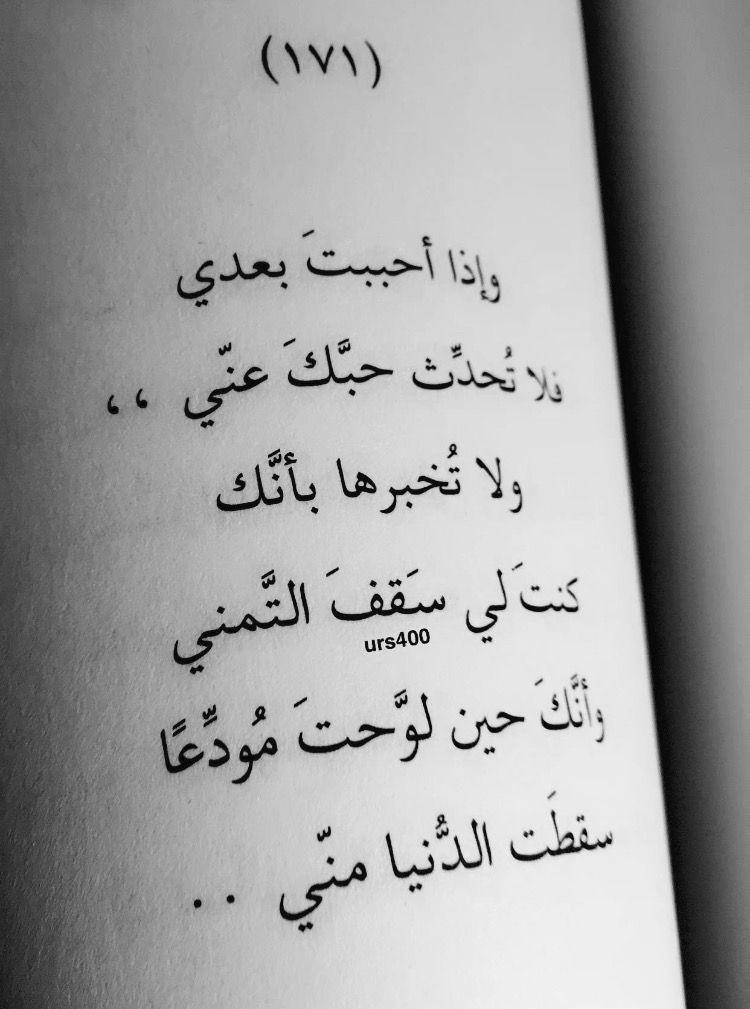 (١٧١)
وإذا أحببتَ بعدي
فلا تُحدِّث حبَّكَ عنّي ،،
ولا تُخبرها بأنَّك
كنتَ لي سَقفَ التَّمني
urs400
وأنَّكَ حين لوَّحتَ مُودِّعًا
سقطَت الدُّنيا منّي . .